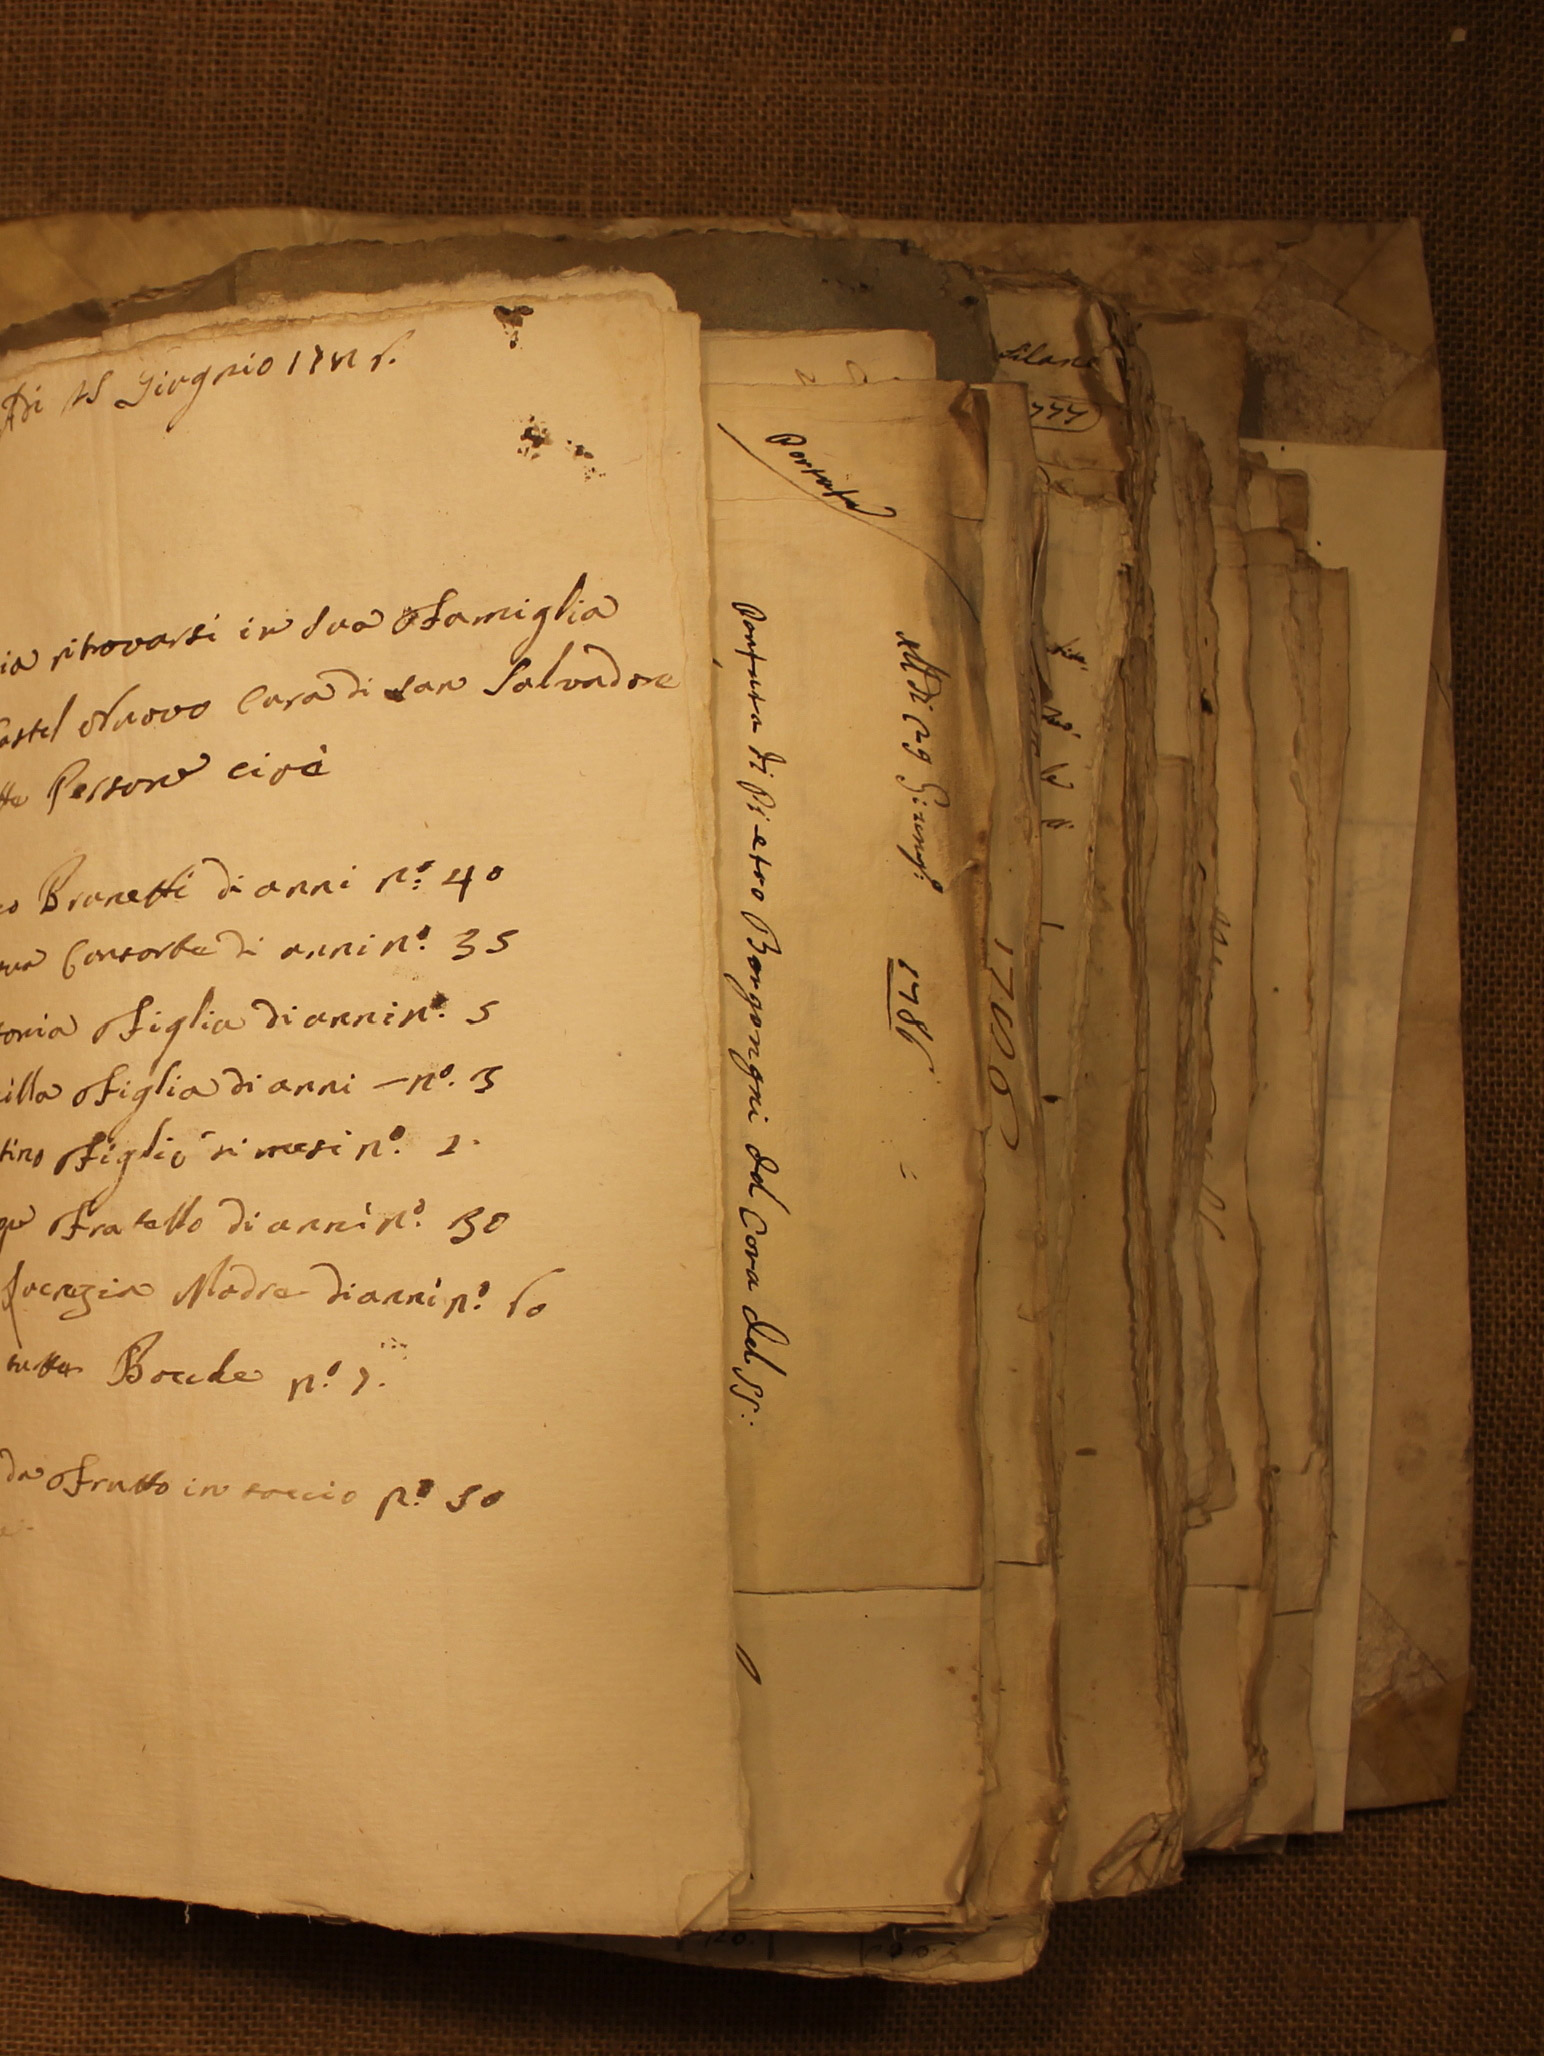 Adi 25 Giugnio 1786.
ia ritrovarsi in Sua Famiglia
Castel Nuovo Cura di San Salvadore
tte Persone cioè
co Brunetti di anni n.º 40
sua Consorte di anni n.º 35
tonia Figlia di anni n.º 5
illa Figlia di anni – n.º 3
tino Figlio di mesi n.º 2.
Fratello di anni n.º 30
Lucrezia Madre di anni n.º 60
tutte Bocche n.º 7.
da Frutto in soccio n.º 50
Portata
Portata di Pietro Borgongni del Cora del SS:
Al di 29 Giungi: 1786
1786
Silane
777